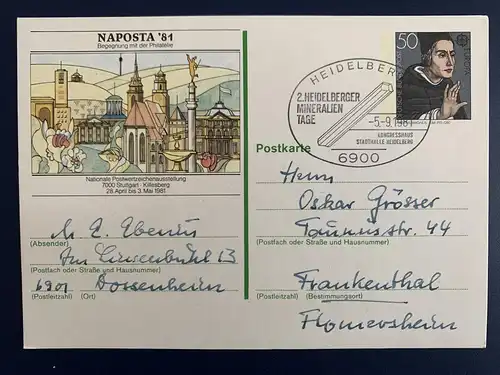 NAPOSTA '81
Begegnung mit der Philatelie
Nationale Postwertzeichenausstellung
7000 Stuttgart · Killesberg
28. April bis 3. Mai 1981
M. E. Ebenin
(Absender)
Am 13
(Postfach oder Straße und Hausnummer)
6901 Dossenheim
(Postleitzahl) (Ort)
HEIDELBERG
2. HEIDELBERGER
MINERALIEN
TAGE
-5.-9.198
KONGRESSHAUS
STADTHALLE HEIDELBERG
6900
50
EUROPA
Postkarte
Herrn
Oskar Grösser
Taunusstr. 44
(Postfach oder Straße und Hausnummer)
Frankenthal
(Postleitzahl) (Bestimmungsort)
Flomersheim